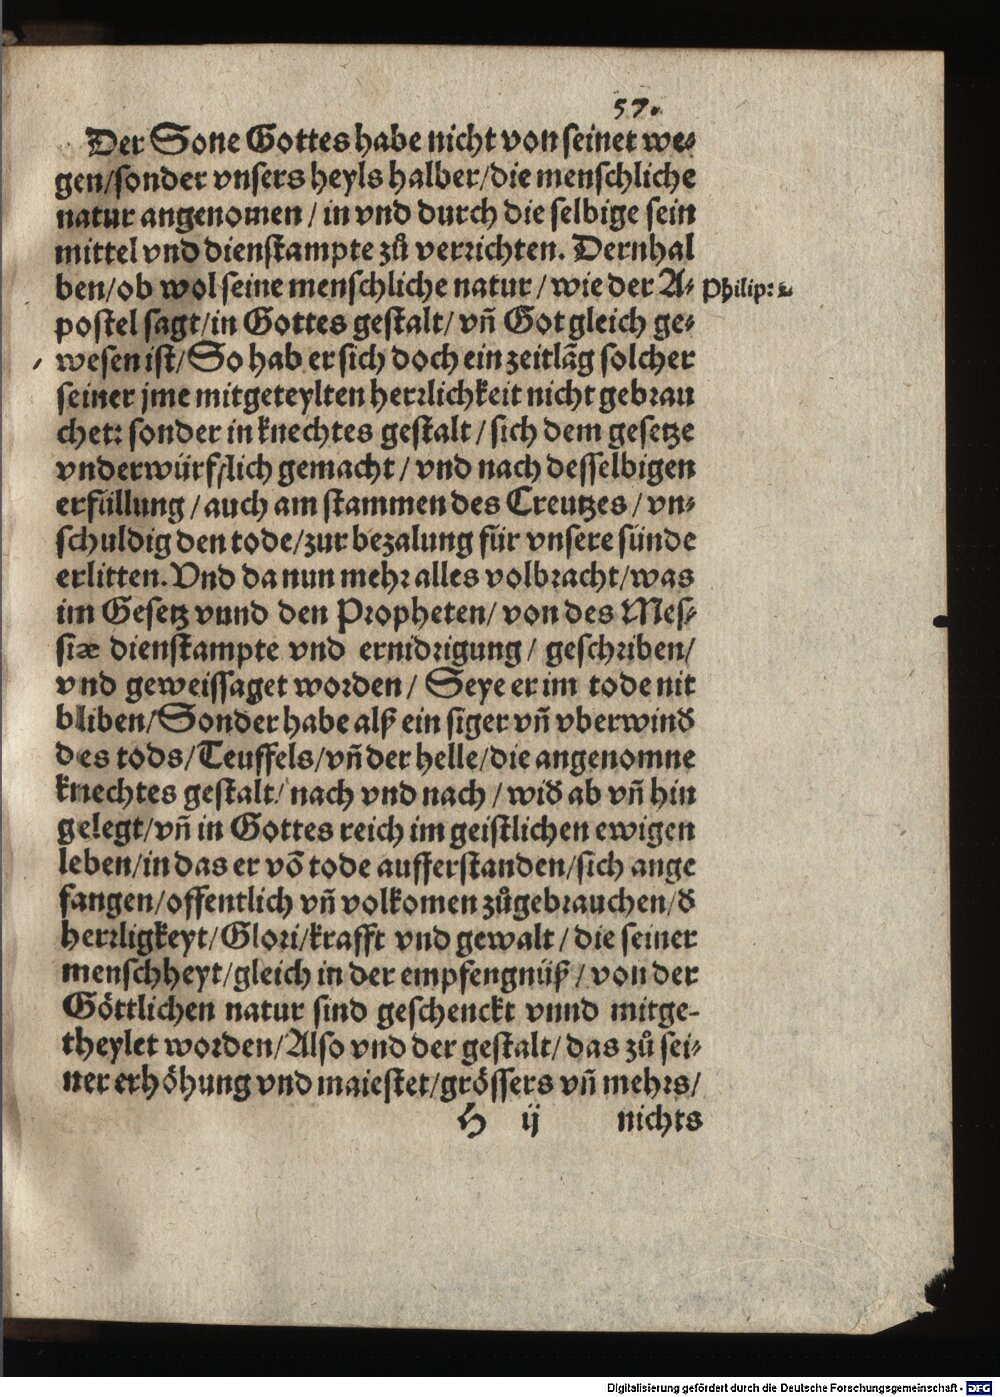 57.
Der Sone Gottes habe nicht von seinet we⸗
gen/sonder vnsers heyls halber/die menschliche
natur angenomen/in vnd durch die selbige sein
mittel vnd dienstampte zů verrichten. Dernhal
ben/ob wol seine menschliche natur/wie der A⸗ Philip: 2.
postel sagt/in Gottes gestalt/vñ Got gleich ge⸗
wesen ist/So hab er sich doch ein zeitlãg solcher
seiner jme mitgeteylten herrlichkeit nicht gebrau
chet: sonder in knechtes gestalt/sich dem gesetze
vnderwürfflich gemacht/vnd nach desselbigen
erfüllung/auch am stammen des Creutzes/vn⸗
schuldig den tode/zur bezalung für vnsere sünde
erlitten. Vnd da nun mehr alles volbracht/was
im Gesetz vnnd den Propheten/von des Mes⸗
siæ dienstampte vnd ernidrigung/geschriben/
vnd geweissaget worden/Seye er im tode nit
bliben/Sonder habe alß ein siger vñ vberwinđ
des tods/Teuffels/vñ der helle/die angenomne
knechtes gestalt/nach vnd nach/wiđ ab vñ hin
gelegt/vñ in Gottes reich im geistlichen ewigen
leben/in das er võ tode aufferstanden/sich ange
fangen/offentlich vñ volkomen zůgebrauchen/đ
herrligkeyt/Glori/krafft vnd gewalt/die seiner
menschheyt/gleich in der empfengnüß/von der
Göttlichen natur sind geschenckt vnnd mitge-
theylet worden/Also vnd der gestalt/das zů sei⸗
ner erhöhung vnd maiestet/grössers vñ mehrs/
H ij nichts
Digitalisierung gefördert durch die Deutsche Forschungsgemeinschaft - DFG